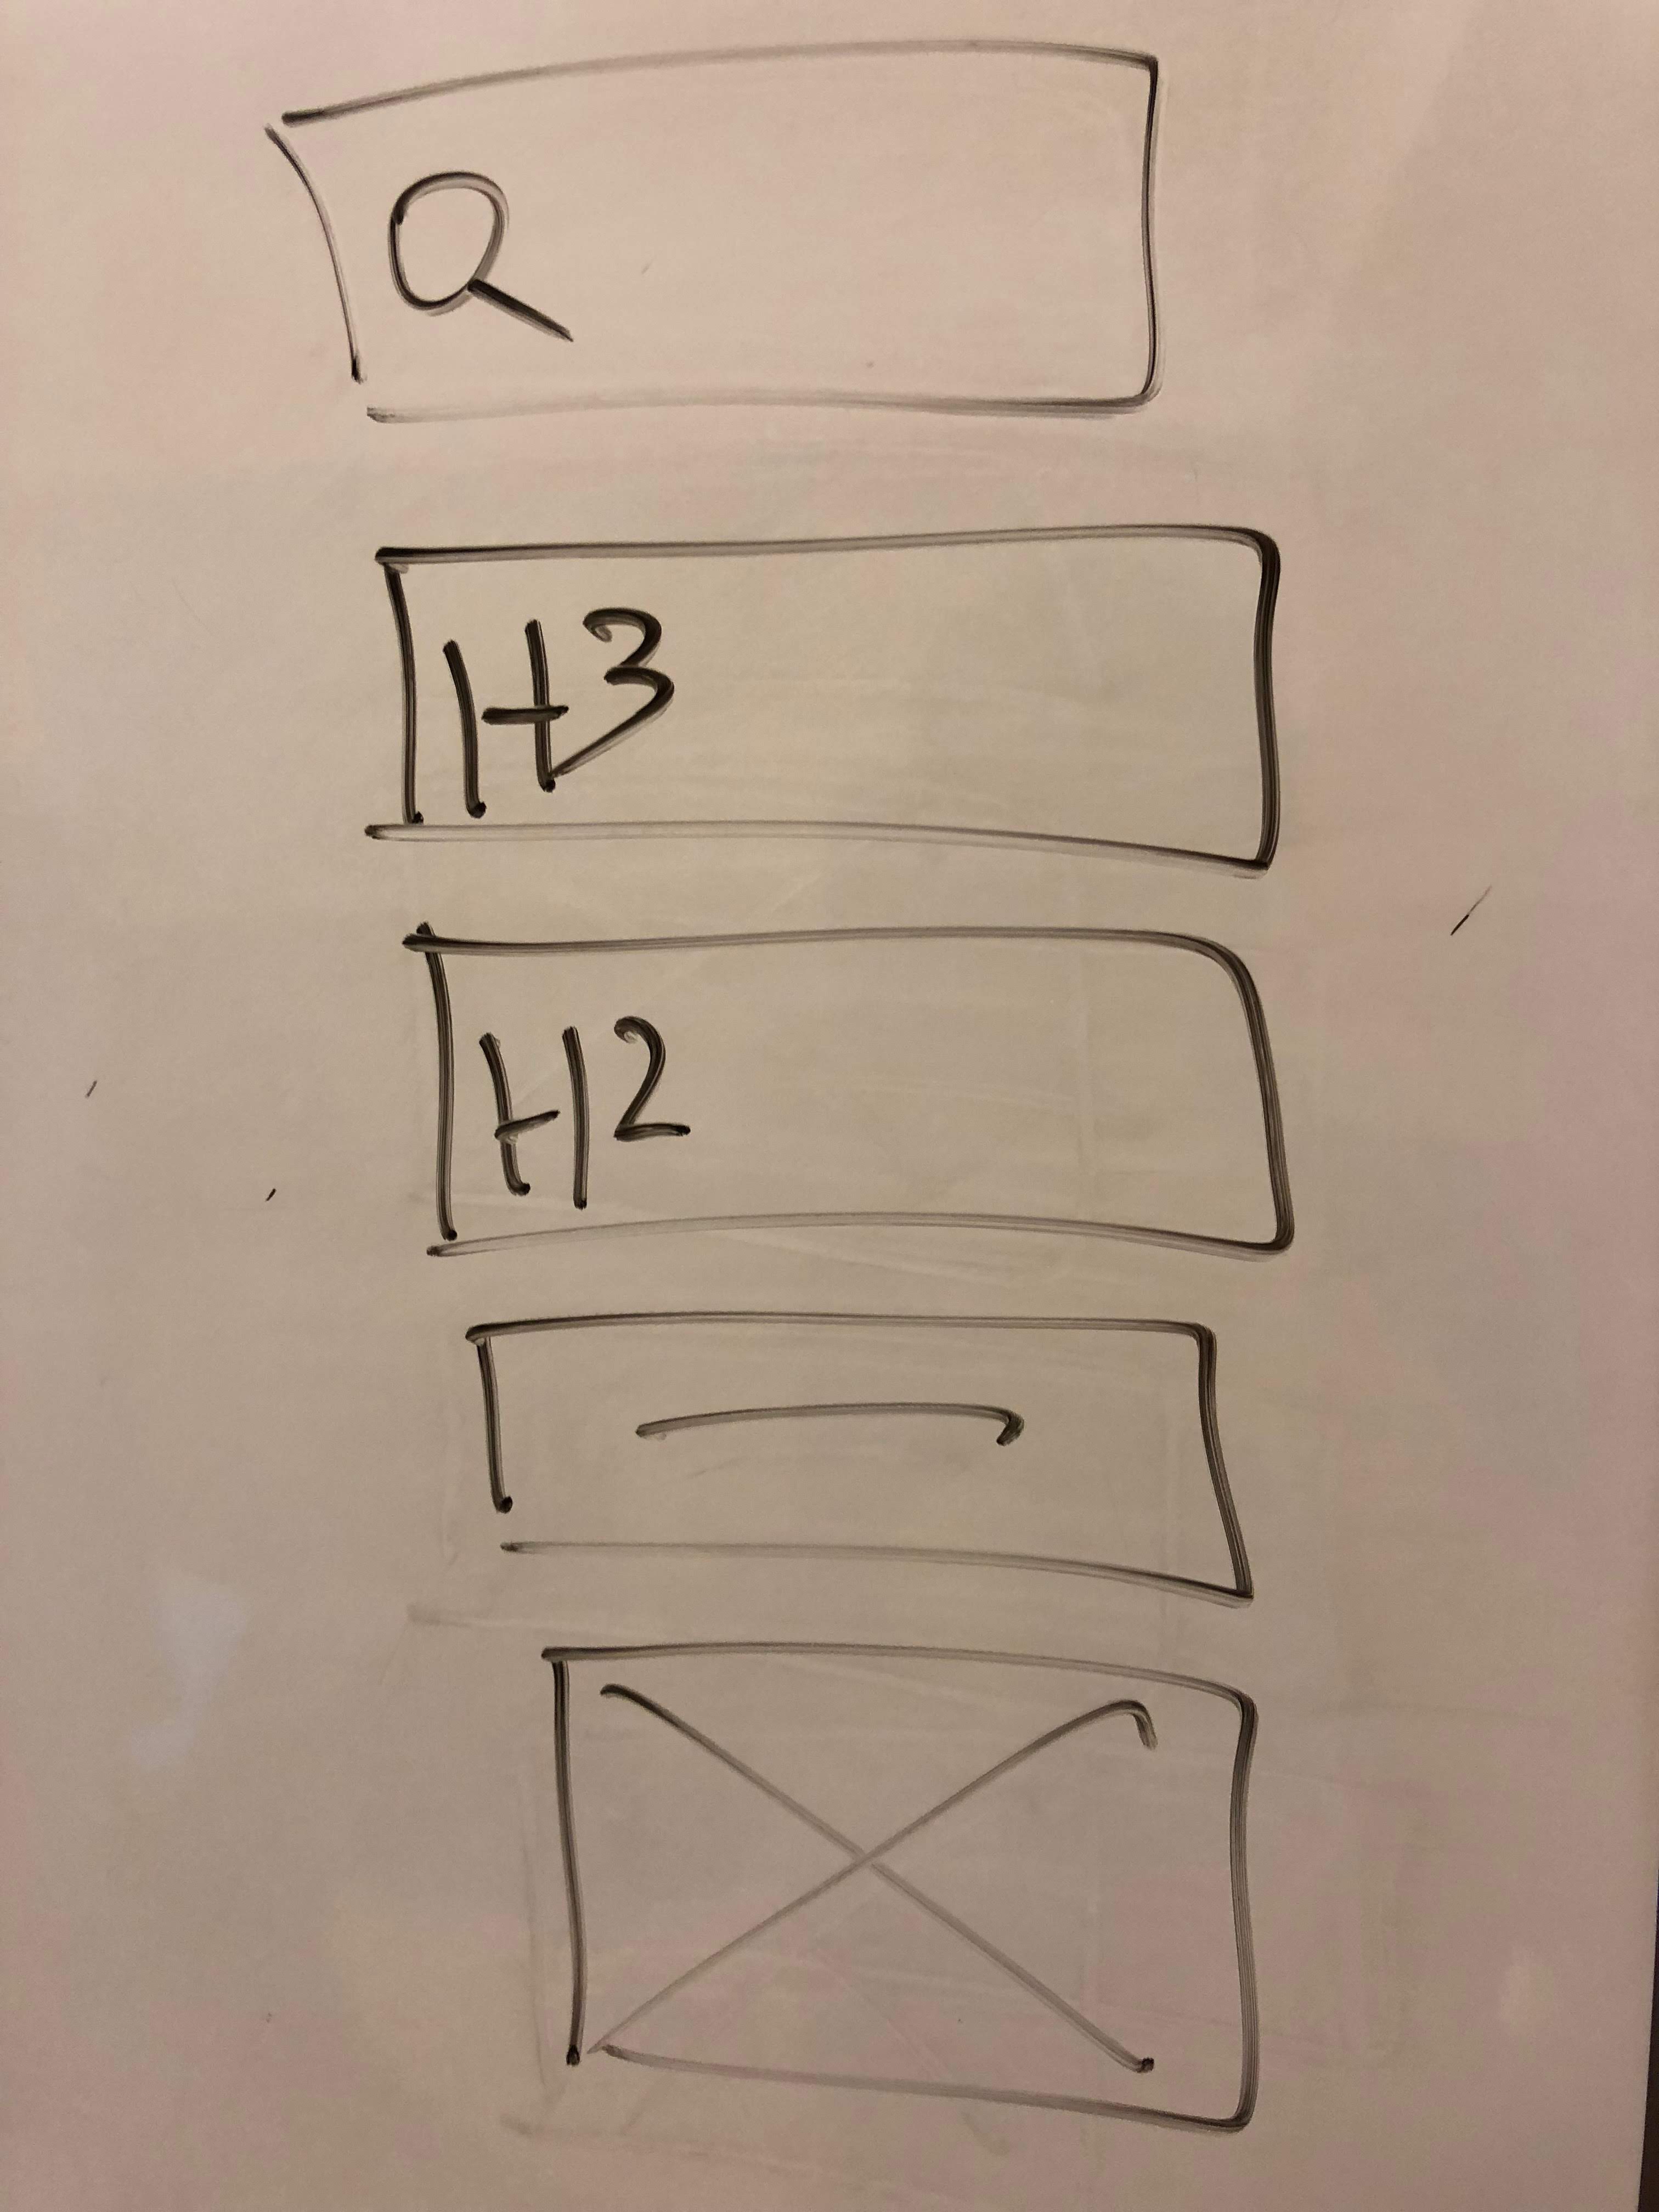 H3
H2